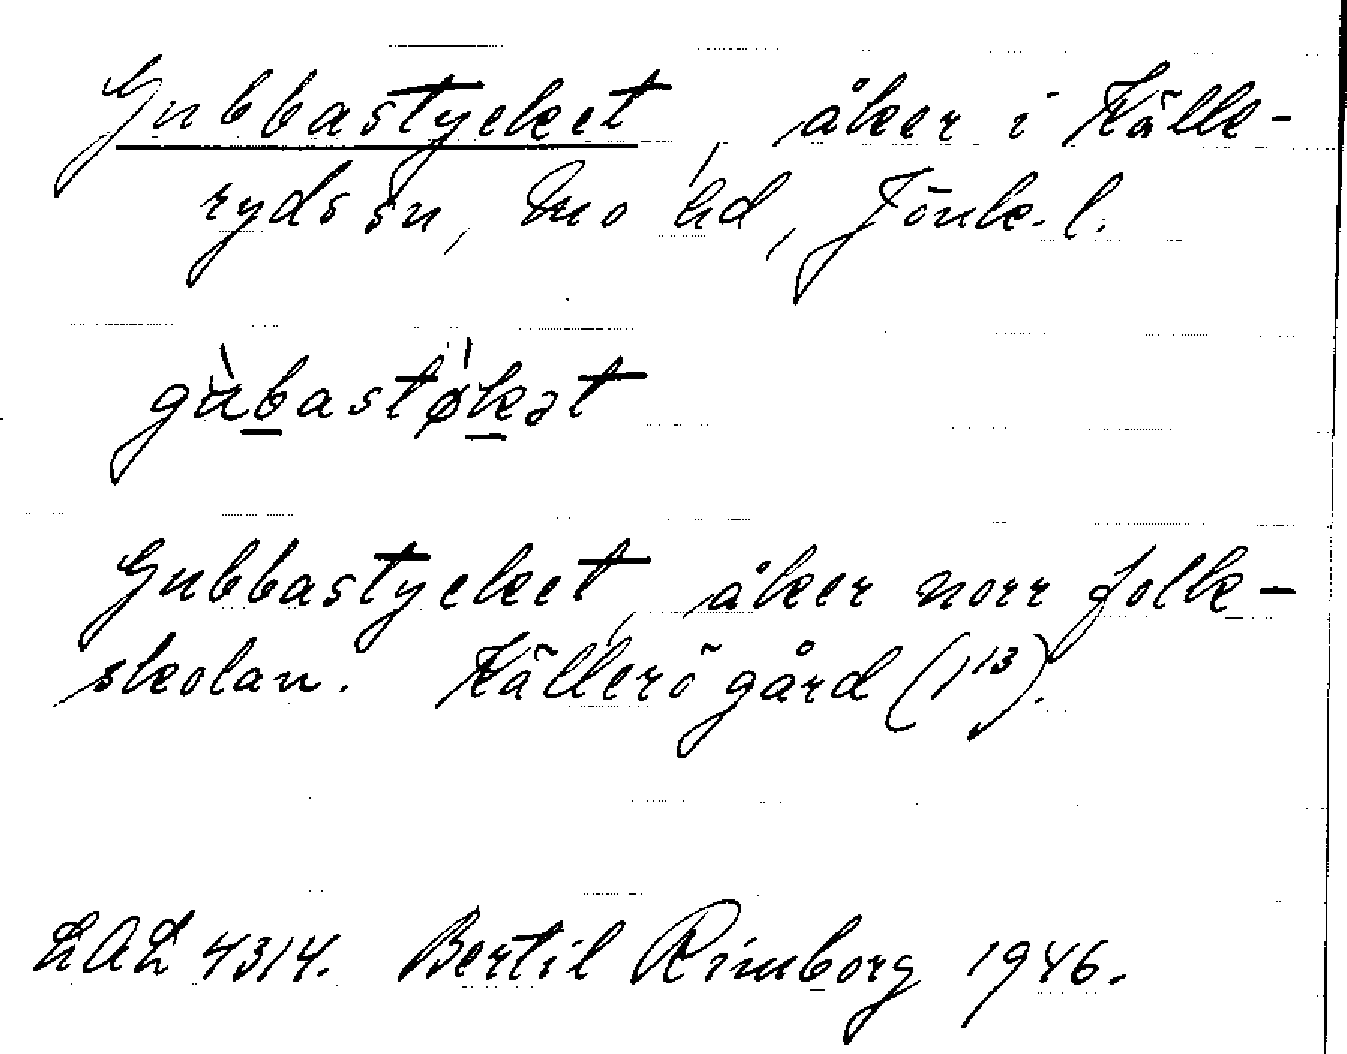 Gubbastycket, åker i Kålle-
ryds sn, Mo hd, Jönk. l.
gùbastø̀kət
Gubbastycket, åker norr folk-
skolan. Kållerö gård (1¹³).
LAL 4314. Bertil Rimborg 1946.